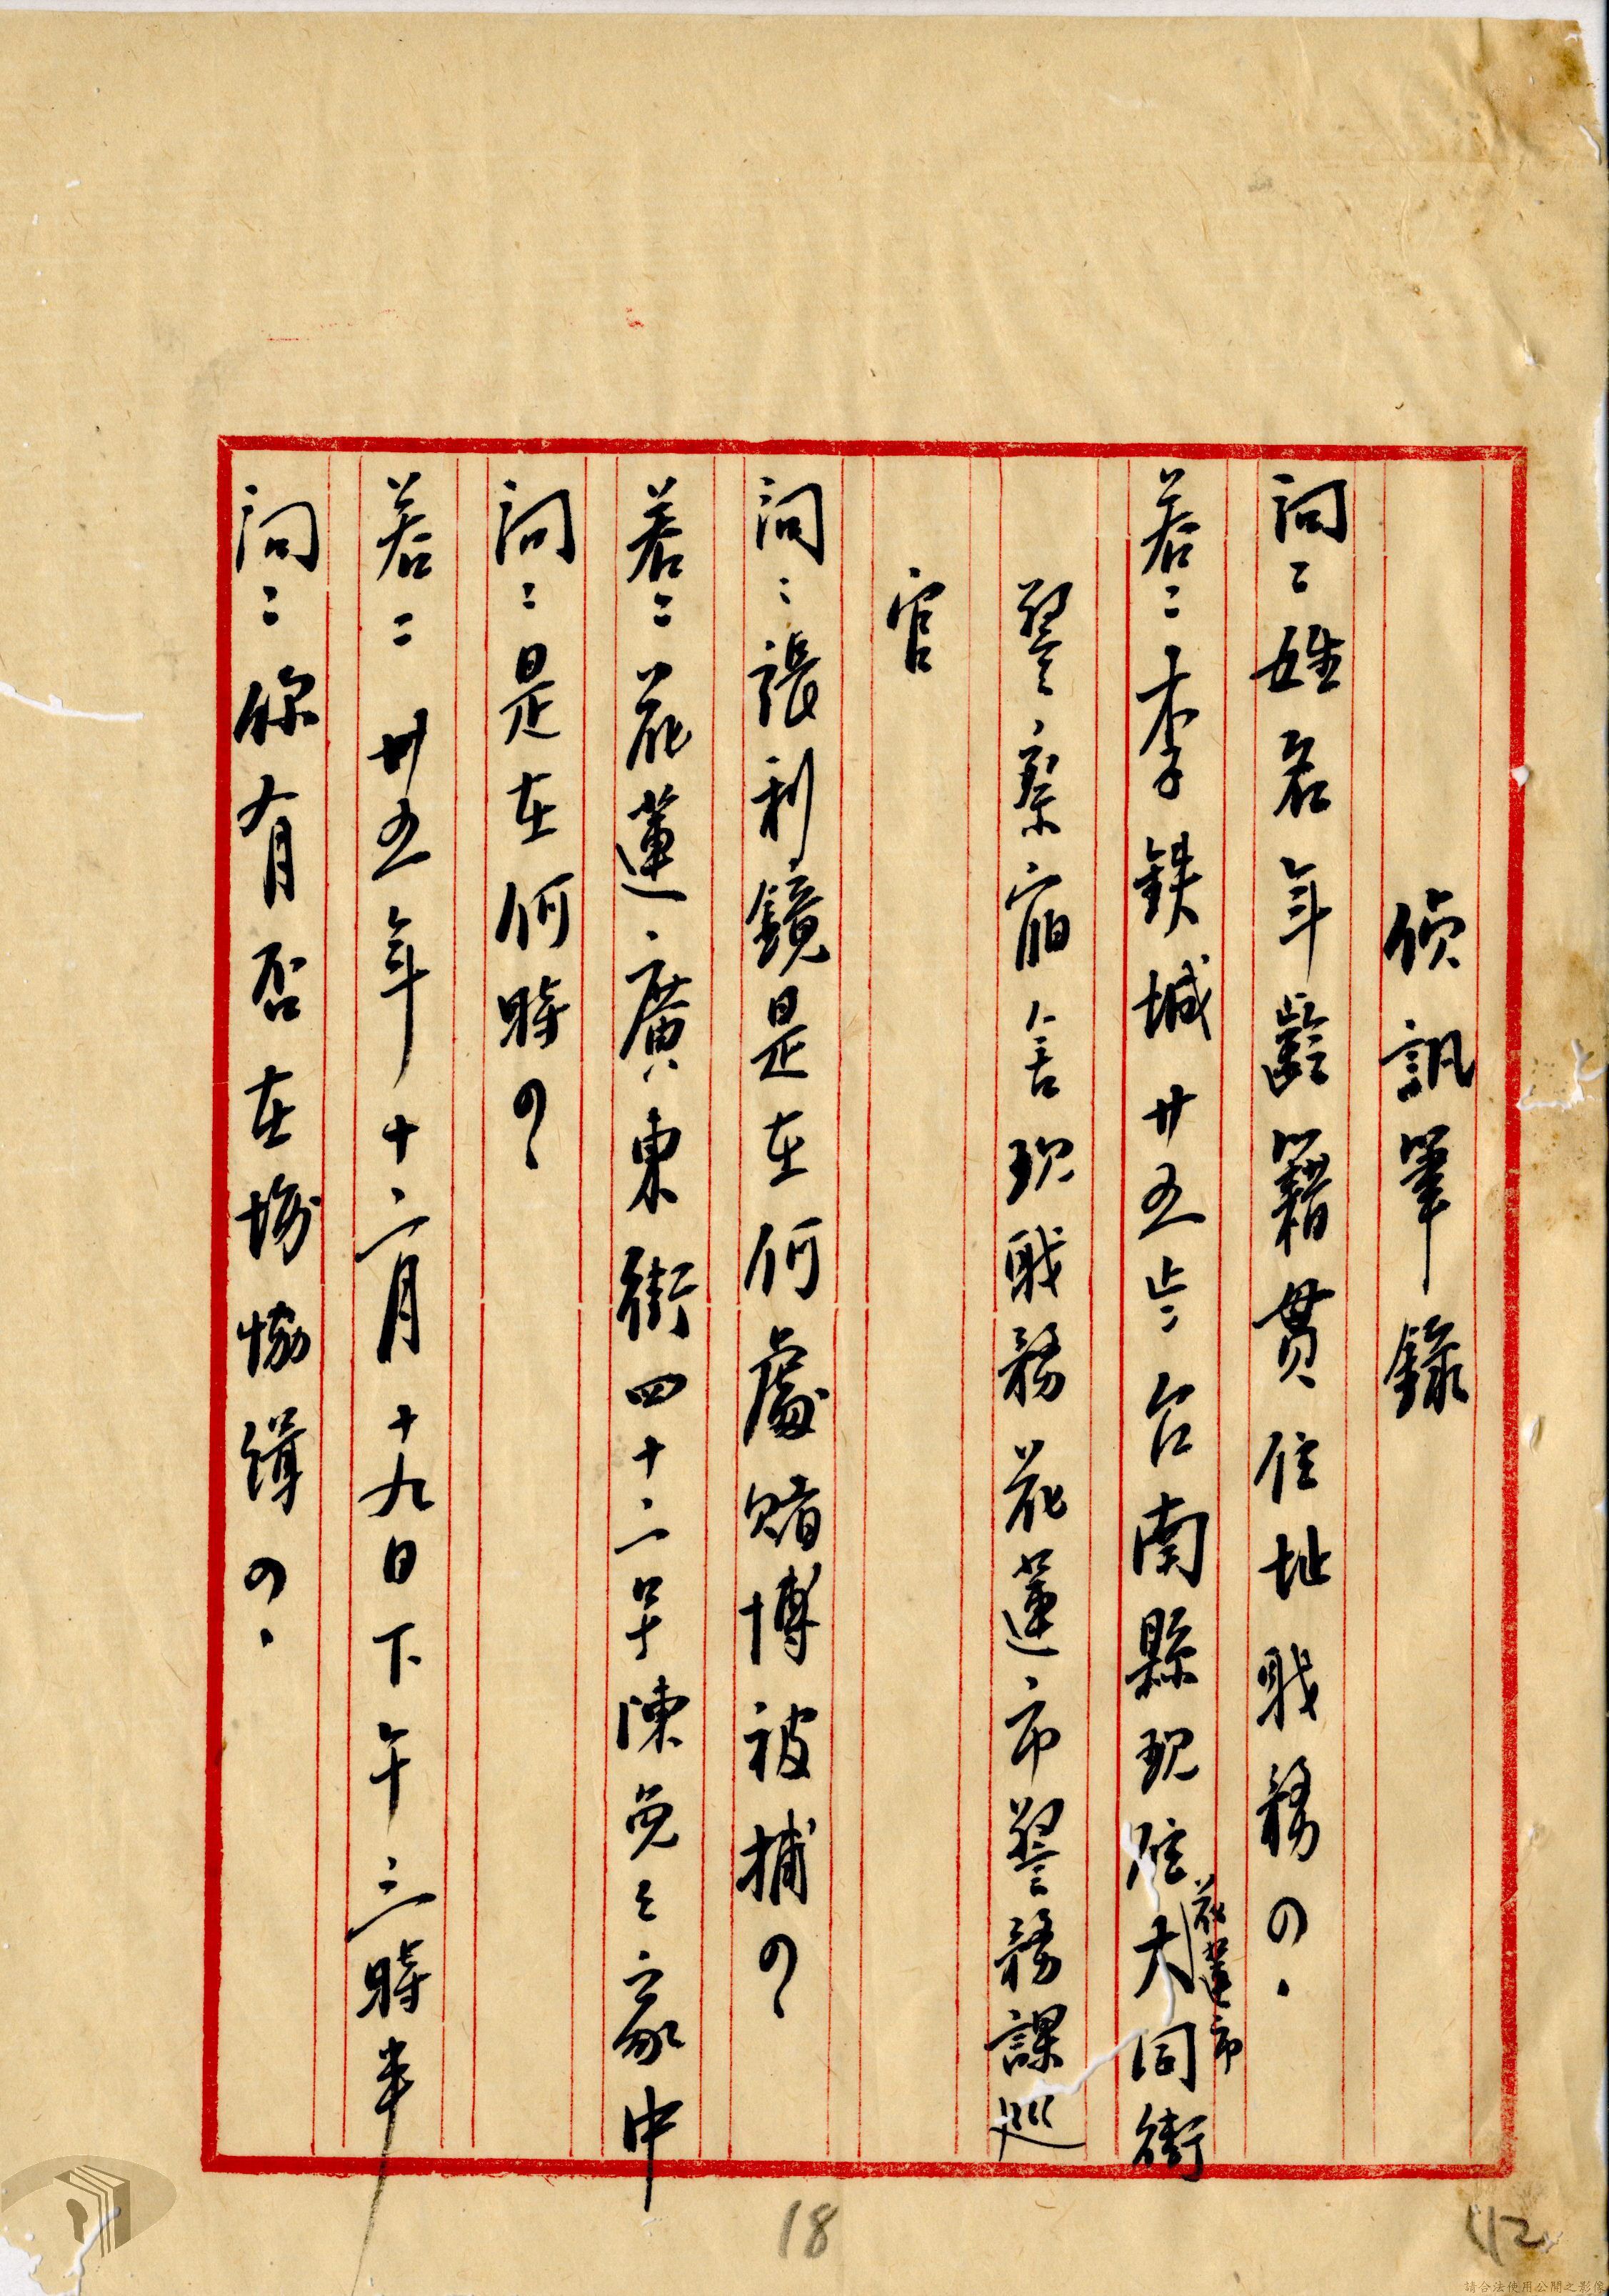 偵訊筆錄
問：姓名年齡籍貫住址職務？
答：李鉄城廿五歲台南縣現住花蓮市大同街
警察宿舍現職務花蓮市警務課巡
官
問：張利鏡是在何處賭博被捕？
答：花蓮廣東街四十二号陳免之家中
問：是在何時？
答：卅五年十二月十九日下午三時半
問：你有否在場協緝？
18
112
請合法使用公開之影像